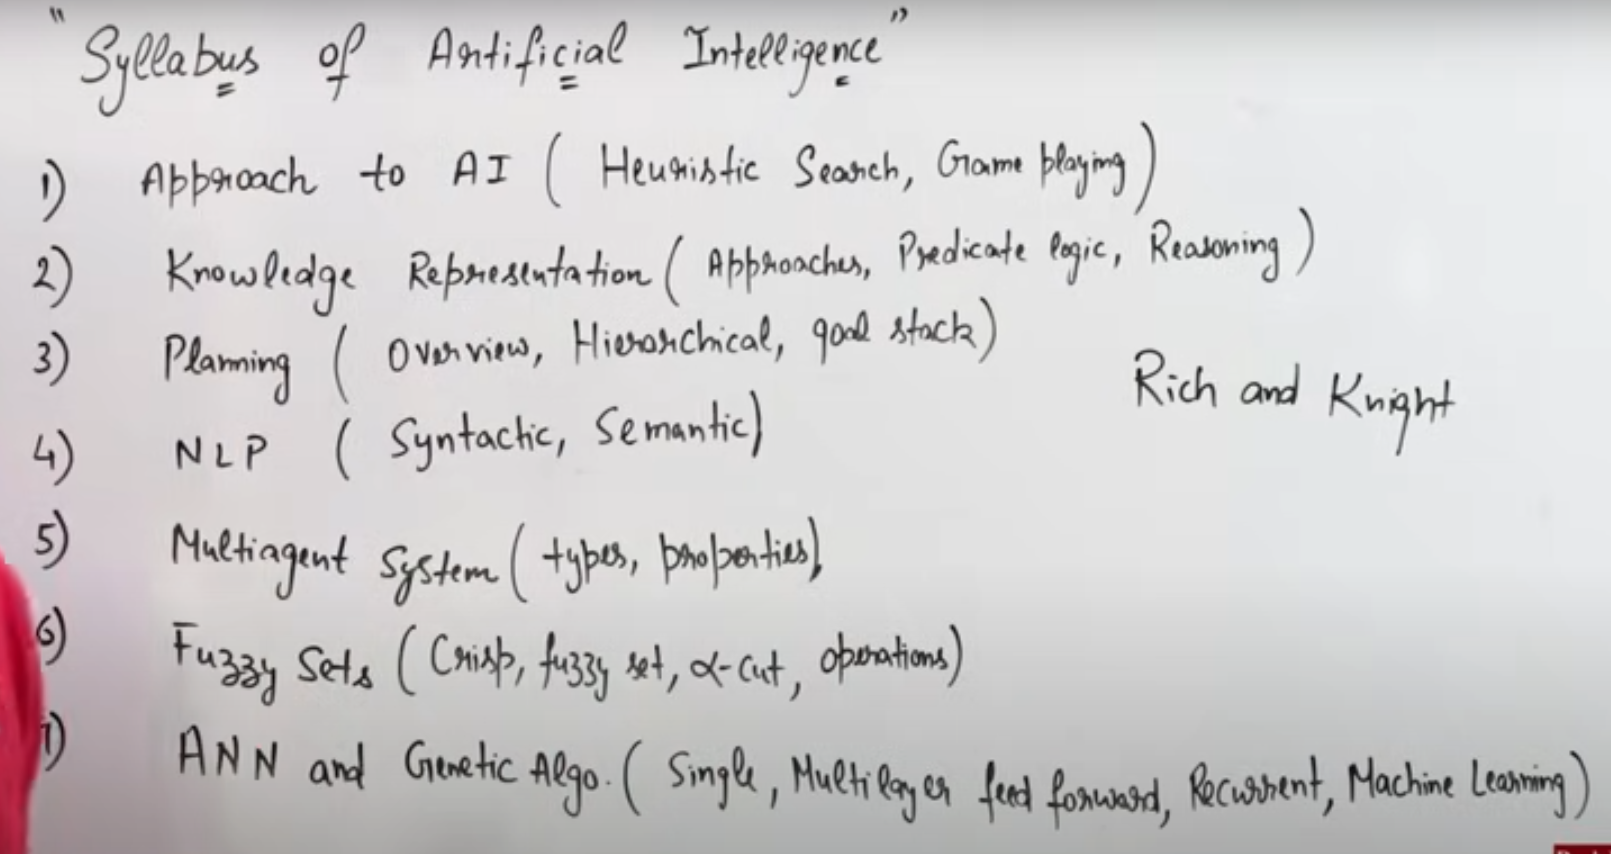 "Syllabus of Artificial Intelligence"
1) Approach to AI ( Heuristic Search, Game playing)
2) Knowledge Representation ( Approaches, Predicate logic, Reasoning )
3) Planning ( Overview, Hierarchical, goal stack)
Rich and Knight
4) NLP ( Syntactic, Semantic)
5) Multiagent System ( types, properties)
6) Fuzzy Sets ( Crisp, fuzzy set, α-cut, operations)
7) ANN and Genetic Algo. ( Single, Multilayer feed forward, Recurrent, Machine Learning)